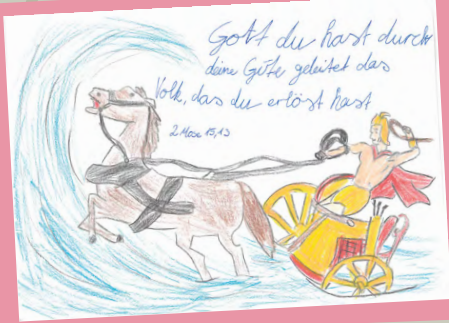 Gott du hast durch
deine Güte geleitet das
Volk, das du erlöst hast
2. Mose 15,13